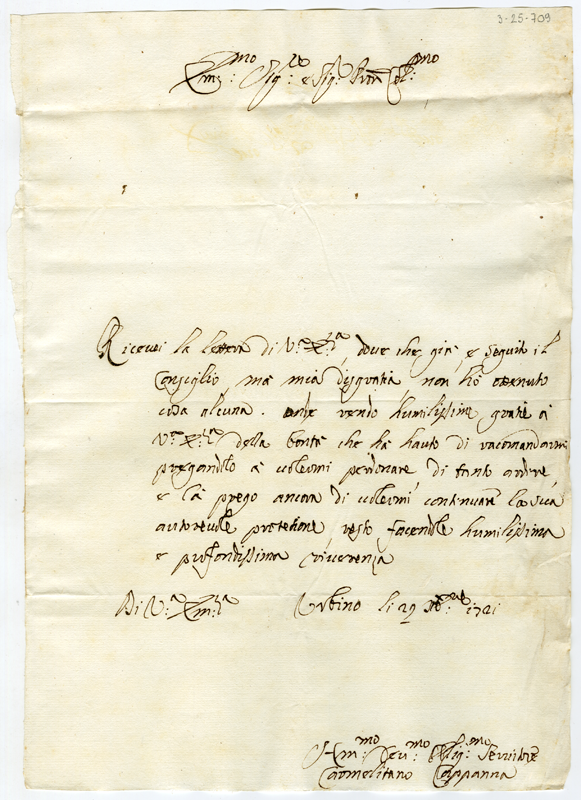 3-25-709
Em:mo Sig:re e Sig:r Prōn Col:mo
Ricevei la lettera di V:a E:za, dove che già, è seguito il
Consiglio, mà mia disgratia non hò ottenuto
cosa alcuna. onde rendo humilissime gratie à
V:a E:za della bontà che hà hauto di racomandarmi
pregandolo à volermi perdonare di tanto ardire,
e la prego ancora di volermi continuare la sua
autorevole protetione resto facendole humilissima
e profondissima riverenza
Di V:a Em:za Urbino li 29 1721
Hum:mo Dev:mo Oblig:mo Servidore
Cappanna